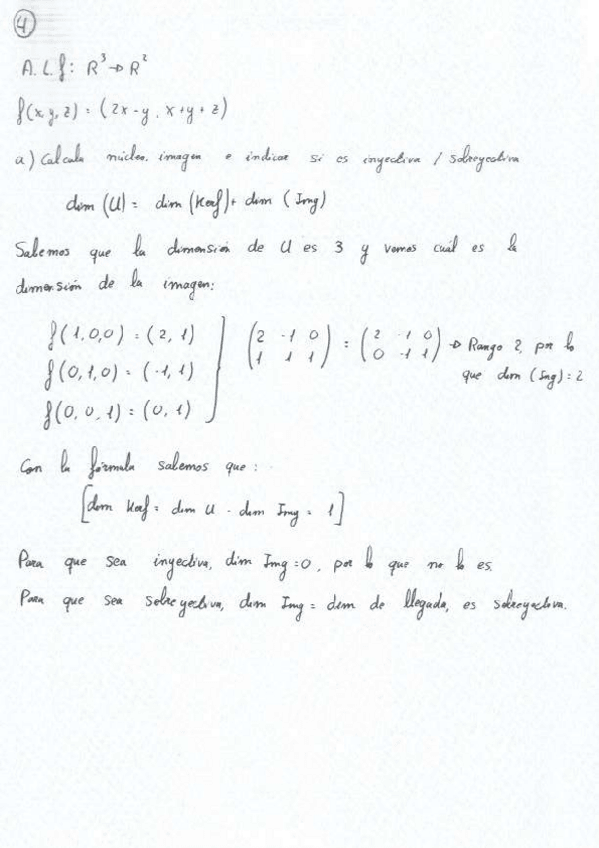 4
A.L. f: R³ → R²
f(x,y,z) = (2x-y, x+y+z)
a) Calcula núcleo, imagen e indicar si es inyectiva / sobreyectiva
dim (U) = dim (Kerf) + dim (Img)
Sabemos que la dimensión de U es 3 y vemos cuál es la
dimensión de la imagen:
f(1,0,0) = (2, 1)
f(0,1,0) = (-1, 1)
f(0,0,1) = (0, 1)
(2 -1 0 / 1 1 1) = (2 -1 0 / 0 -1 1) → Rango 2, por lo
que dim (Img) = 2
Con la fórmula sabemos que:
[dim Kerf = dim U - dim Img = 1]
Para que sea inyectiva, dim Img = 0, por lo que no lo es.
Para que sea sobreyectiva, dim Img = dim de llegada, es sobreyectiva.